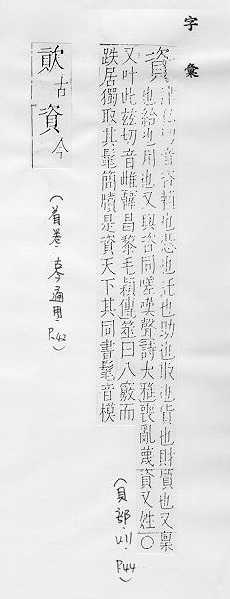 字彙
資 津私切音咨賴也憑也託也助也取也貨也財質也又稟
也給也用也又與咨同嗟嘆聲詩大雅喪亂蔑資又姓○
又叶此兹切音雌韓昌黎毛穎傳筮曰八竅而
趺居獨取其髦簡牘是資天下其同書髦音模
(貝部. P.44)
古 資今
(首卷.古今通用 P.42)